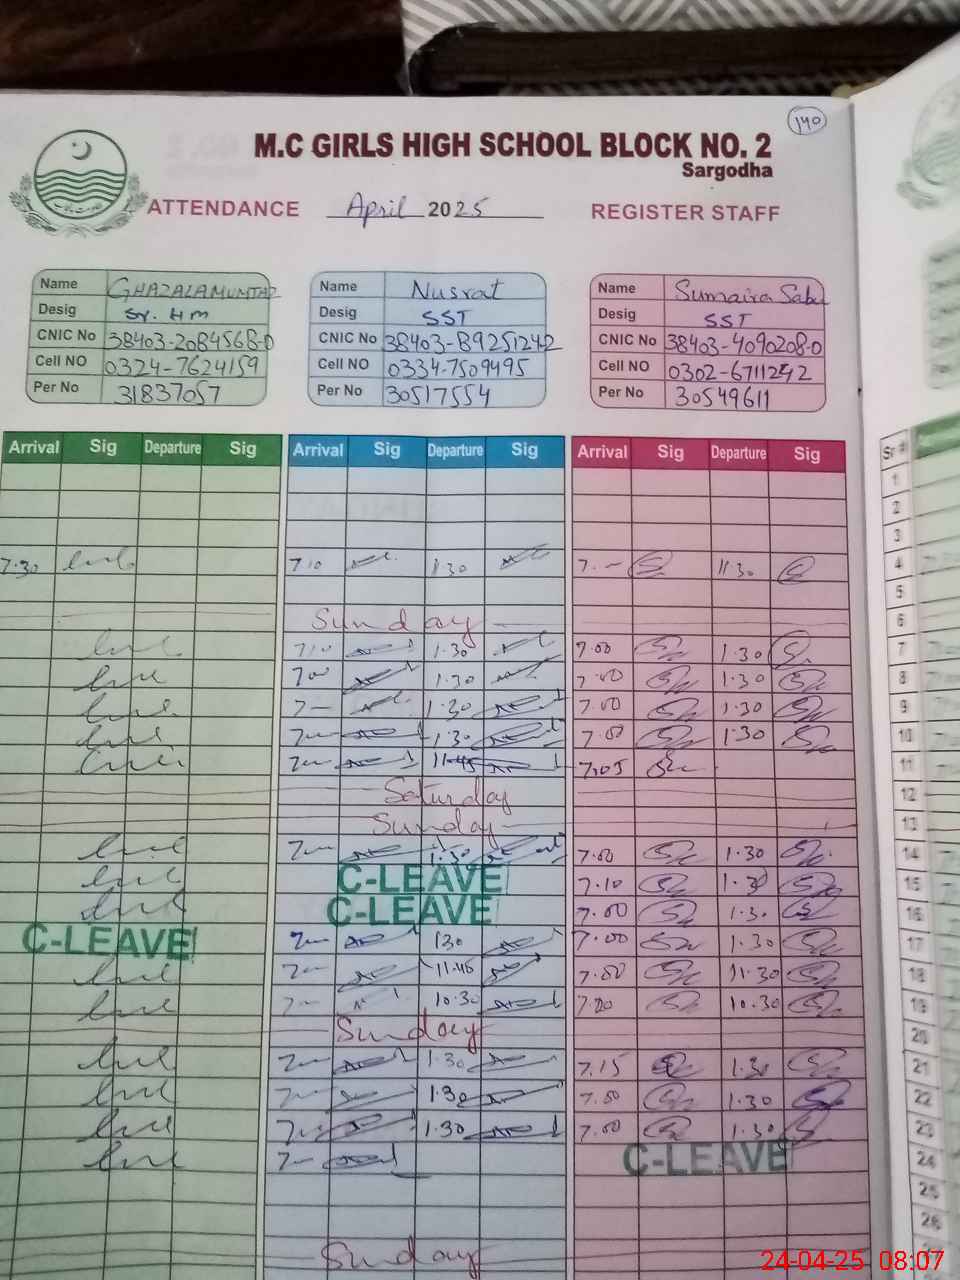 140
M.C GIRLS HIGH SCHOOL BLOCK NO. 2
Sargodha
ATTENDANCE April 2025 REGISTER STAFF
Name GHAZALA MUMTAZ
Desig Sr. HM
CNIC No 38403-2084568-0
Cell NO 0324-7624159
Per No 31837057
Name Nusrat
Desig SST
CNIC No 38403-8925124-2
Cell NO 0334-7509495
Per No 30517554
Name Sumaira
Desig SST
CNIC No 38403-4090208-0
Cell NO 0302-6711242
Per No 30549611
Arrival Sig Departure Sig Arrival Sig Departure Sig Arrival Sig Departure Sig Sr #
1
2
3
7.30 7.10 1.30 7.— 11.30 4
5
Sunday 6
7.10 1.30 7.00 1.30 7
7.00 1.30 7.00 1.30 8
7— 1.30 7.00 1.30 9
7— 1.30 7.00 1.30 10
7— 11.45 7.05 11
Saturday 12
Sunday 13
7— 1.30 7.00 1.30 14
C-LEAVE 7.10 1.30 15
C-LEAVE 7.00 1.30 16
C-LEAVE 7— 1.30 7.00 1.30 17
7— 11.45 7.00 11.30 18
7— 10.30 7.20 10.30 19
Sunday 20
7— 1.30 7.15 1.30 21
7— 1.30 7.00 1.30 22
7— 1.30 7.00 1.30 23
7— C-LEAVE 24
25
26
Sunday
24-04-25 08:07